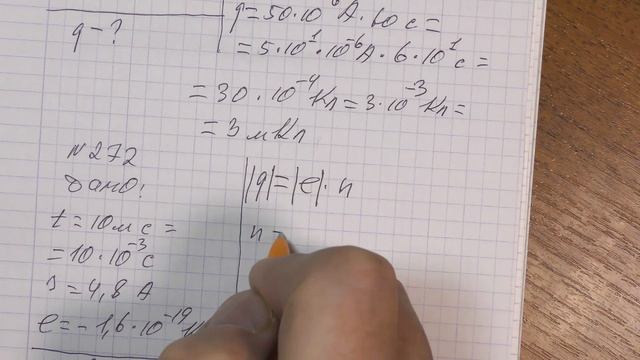 q = 50·10⁻⁶ A · 60 c =
q – ?
= 5·10¹·10⁻⁶ A · 6·10¹ c =
= 30·10⁻⁴ Кл = 3·10⁻³ Кл =
= 3 мкл
N272
Дано:
t = 10 мс =
= 10·10⁻³ c
I = 4,8 A
e = –1,6·10⁻¹⁹ К
|q| = |e|·n
n =